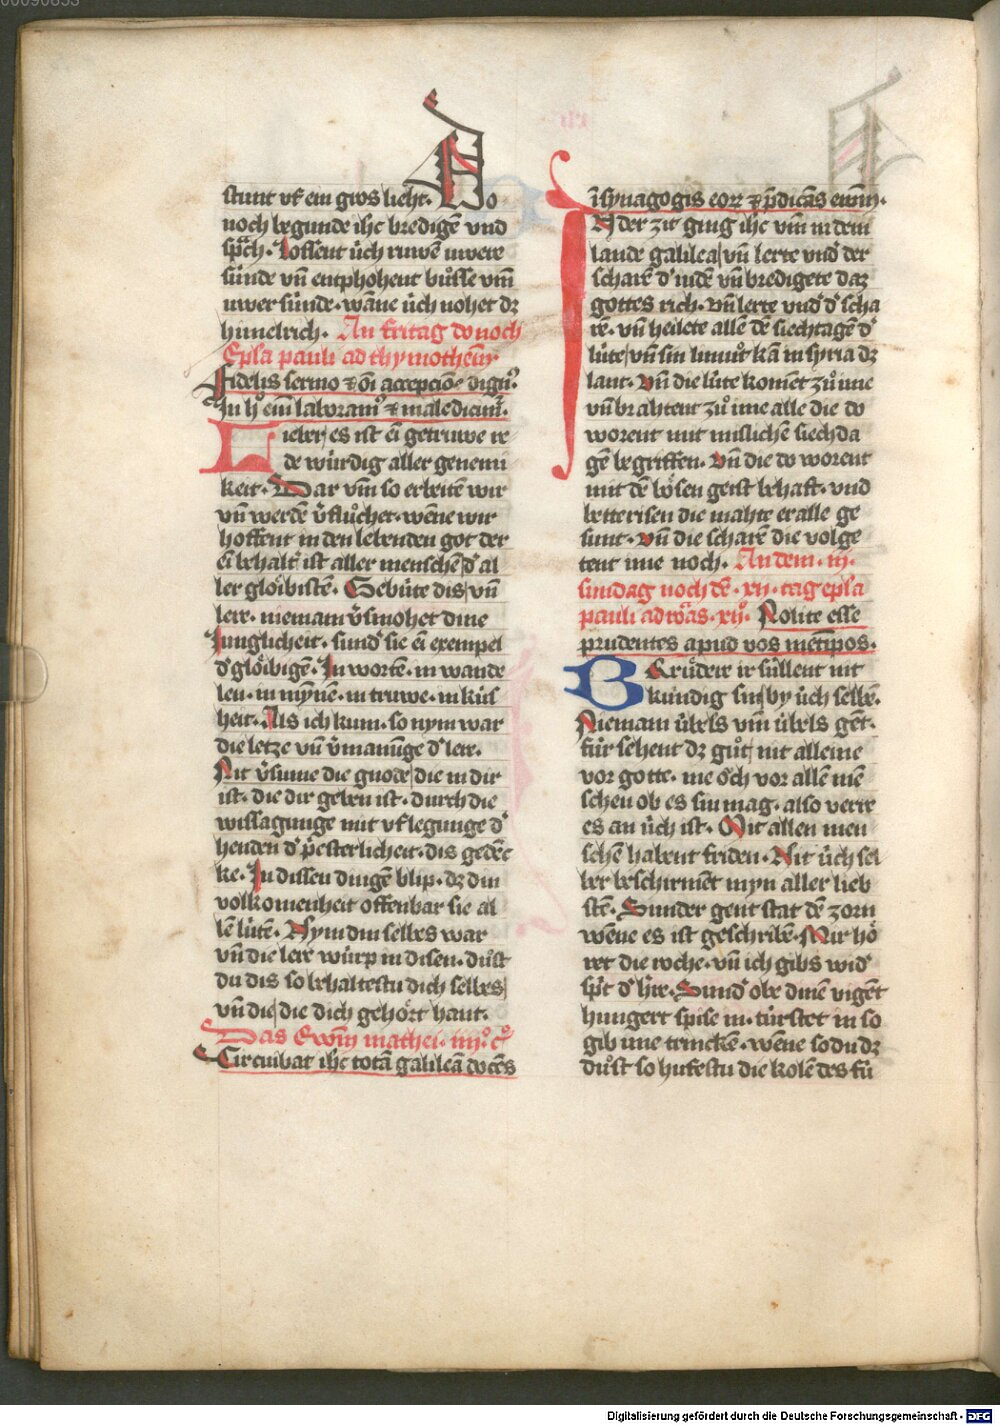 00090853
stunt vf ein gros liecht. Do
noch begunde ihc bredigē vnd
spͣch. Loffent úch ruwē uwere
súnde vn̄ entphohent bůsse vm̄
uwer súnde. wāne úch nohet dz
himelrich. An fritag do noch
Epl̄a pauli ad thymotheū.
Fidelis sermo ⁊ oī accepcōe dignꝰ.
In hͦ eīm laboramꝰ ⁊ maledicimͬ.
Lieber, es ist eī getruwe re
de wúrdig aller genemi
keit. Dar vm̄ so erbeitē wir
vn̄ werdē v̄flůchet. wēne wir
hoffent in den lebenden got der
eī behaltͬ ist aller menschē dͬ al
ler gloͤibistē. Gebúte dis vn̄
lere. nieman v̄smohet dine
Junglicheit. sundͬ sie eī exempel
dͬ gloͤibigē. In wortē. in wande
len. in mȳnē. in truwe. in kús
heit. Als ich kum. so nym war
die letze vn̄ v̄manūge dͬ lere.
Nit v̄sume die gnode die in dir
ist. die dir geben ist. durch die
wissagunge mit vflegunge dͬ
henden dͬ p̄esterlicheit. dis gedēc
ke. In dissen dingē blip. dz din
volkomenheit offenbar sie al
lē lútē. Nym din selbes war
vn̄ die lere wúrp in disen. důst
du dis so behaltestu dich selbes
vn̄ die, die dich gehoͤrt hant.
Das Ewm̄ mathei. iiijͦ. cͦ
Circuibat ihc totā galileā docēs
ī synagogis eorꝝ ⁊ p̄dicās ewm̄.
An der zit ging ihc vm̄ in dem
lande galilea, vn̄ lerte vnd der
scharē dͬ indē vn̄ bredigete daz
gottes rich. vn̄ lerte vnd dͬ scha
re. vn̄ heilete allē dē siechtagē dͬ
lúte, vn̄ sin límůt kā in syria dz
lant. Vn̄ die lúte komēt zů ime
vn̄ brahtent zů ime alle die do
worent mit mislichē siechda
gē begriffen. Vn̄ die do worent
mit dē boͤsen geist behaft. vnd
betterisen die mahte er alle ge
sunt. Vn̄ die scharē die volge
tent ime noch. An dem .iij.
sunndag noch dē .xij. tag epl̄a
pauli ad roͣas .xijͦ. Nolite esse
prudentes apud vos metīpos.
Brúdere ir súllent nit
kúndig sin by úch selbē.
Niemam úbels vm̄ úbels gēt.
fúr sehent dz gůt, nit alleine
vor gotte. me oͤch vor allē mē
schen ob es sin mag. also verre
es an úch ist. Mit allen men
schē habent friden. Nit úch sel
ber beschirmēt myn aller lieb
stē. Sunder gent stat dē zorn
wēne es ist geschribē. Mir hoͤ
ret die roche. vn̄ ich gibs widͬ
spͥct dͬ hͬre. Sundͬ obe dinē vigent
hungert spise in. túrstet in so
gib ime trinckē. wēne so du dz
důst so hufestu die kolē des fú
Digitalisierung gefördert durch die Deutsche Forschungsgemeinschaft - DFG